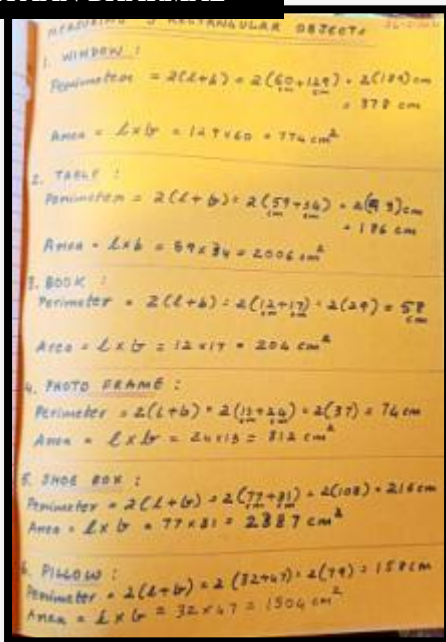 MEASURING 5 RECTANGULAR OBJECTS
1. WINDOW :
Perimeter = 2(l+b) = 2(60+129) = 2(189) cm
cm cm
= 378 cm
Area = l×b = 129×60 = 774 cm²
2. TABLE :
Perimeter = 2(l+b) = 2(59+34) = 2(93) cm
cm cm
= 186 cm
Area = l×b = 59×34 = 2006 cm²
3. BOOK :
Perimeter = 2(l+b) = 2(12+17) = 2(29) = 58
cm cm cm
Area = l×b = 12×17 = 204 cm²
4. PHOTO FRAME :
Perimeter = 2(l+b) = 2(13+24) = 2(37) = 74 cm
cm cm
Area = l×b = 24×13 = 312 cm²
5. SHOE BOX :
Perimeter = 2(l+b) = 2(77+31) = 2(108) = 216 cm
Area = l×b = 77×31 = 2387 cm²
6. PILLOW :
Perimeter = 2(l+b) = 2(32+47) = 2(79) = 158 cm
Area = l×b = 32×47 = 1504 cm²